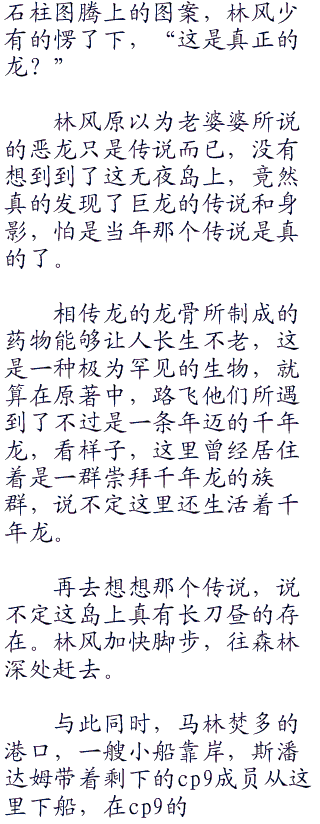 石柱图腾上的图案，林风少
有的愣了下，“这是真正的
龙？”
林风原以为老婆婆所说
的恶龙只是传说而已，没有
想到到了这无夜岛上，竟然
真的发现了巨龙的传说和身
影，怕是当年那个传说是真
的了。
相传龙的龙骨所制成的
药物能够让人长生不老，这
是一种极为罕见的生物，就
算在原著中，路飞他们所遇
到了不过是一条年迈的千年
龙，看样子，这里曾经居住
着是一群崇拜千年龙的族
群，说不定这里还生活着千
年龙。
再去想想那个传说，说
不定这岛上真有长刀昼的存
在。林风加快脚步，往森林
深处赶去。
与此同时，马林焚多的
港口，一艘小船靠岸，斯潘
达姆带着剩下的cp9成员从这
里下船，在cp9的